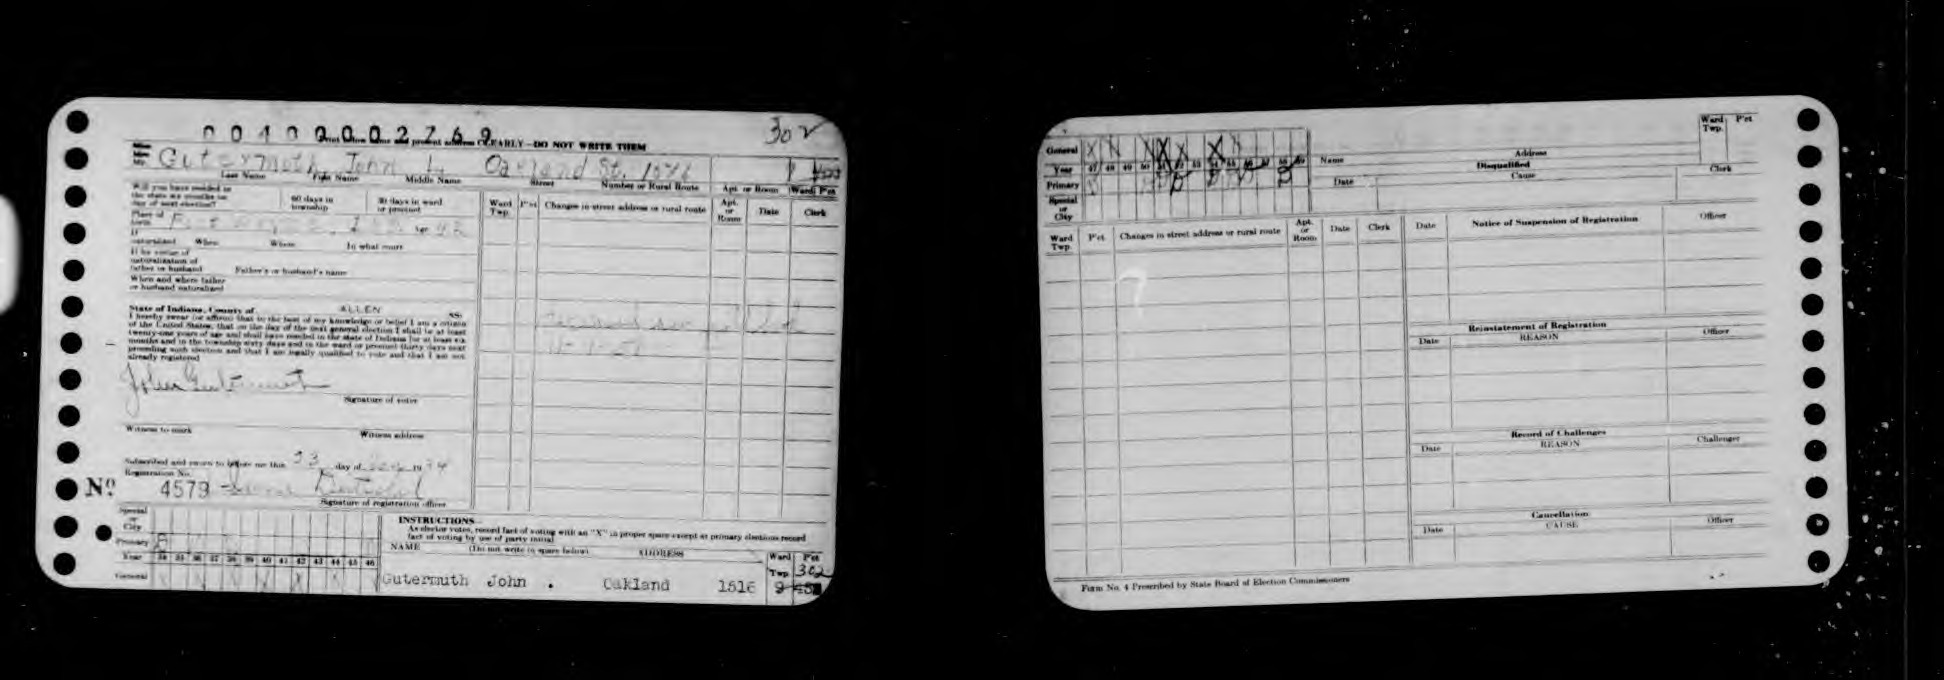 00400002769
302
Print below name and present address CLEARLY—DO NOT WRITE THEM
Mr. Gutermuth John L Oakland St. 1516
Last Name First Name Middle Name Street Number or Rural Route Apt. or Room Ward P'ct
Will you have resided in the state six months on day of next election? 60 days in township 30 days in ward or precinct
Ward Twp. P'ct Changes in street address or rural route Apt. or Room Date Clerk
Place of birth Age 42
If naturalized When Where In what court
If by virtue of naturalization of father or husband Father's or husband's name
When and where father or husband naturalized
State of Indiana, County of ALLEN SS:
I hereby swear (or affirm) that to the best of my knowledge or belief I am a citizen
of the United States, that on the day of the next general election I shall be at least
twenty-one years of age and shall have resided in the state of Indiana for at least six
months and in the township sixty days and in the ward or precinct thirty days next
preceding such election and that I am legally qualified to vote and that I am not
already registered
John Gutermuth
Signature of voter
Witness to mark Witness address
Subscribed and sworn to before me this 23 day of 1934
Registration No.
No 4579
Signature of registration officer
Special or City
Primary
Year 34 35 36 37 38 39 40 41 42 43 44 45 46
General
INSTRUCTIONS—
As elector votes, record fact of voting with an "X" in proper space except at primary elections record
fact of voting by use of party initial
NAME (Do not write in space below) ADDRESS Ward Twp P'ct
302
Gutermuth John . Oakland 1516 9
General
Year 47 48 49 50 51 52 53 54 55 56 57 58 59
Primary
Special or City
Name Address Ward Twp. P'ct
Disqualified
Date Cause Clerk
Ward Twp. P'ct Changes in street address or rural route Apt. or Room Date Clerk
Date Notice of Suspension of Registration Officer
Reinstatement of Registration
Date REASON Officer
Record of Challenges
Date REASON Challenger
Cancellation
Date CAUSE Officer
Form No. 4 Prescribed by State Board of Election Commissioners